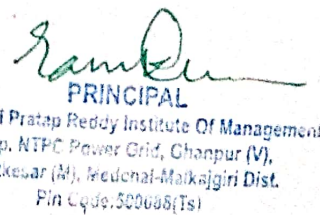 PRINCIPAL
i Pratap Reddy Institute Of Management
p. NTPC Power Grid, Ghanpur (V),
kesar (M), Medchal-Malkajgiri Dist.
Pin Code:500088(Ts)